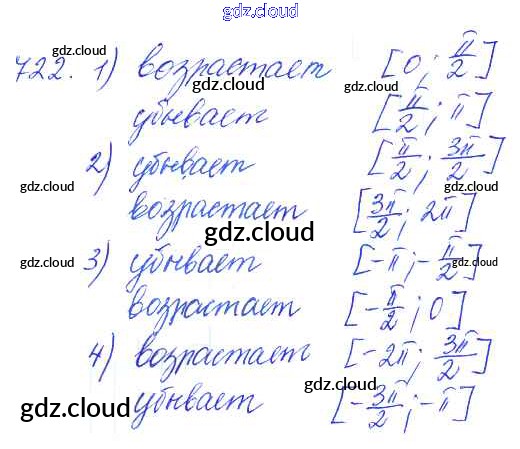 gdz.cloud
722. 1) возрастает [0; π/2]
gdz.cloud gdz.cloud
gdz.cloud
убывает [π/2; π]
gdz.cloud
2) убывает [π/2; 3π/2]
gdz.cloud gdz.cloud
возрастает [3π/2; 2π]
gdz.cloud
gdz.cloud 3) убывает [-π; -π/2] gdz.cloud
возрастает [-π/2; 0]
4) возрастает [-2π; 3π/2]
gdz.cloud gdz.cloud
убывает [-3π/2; -π]